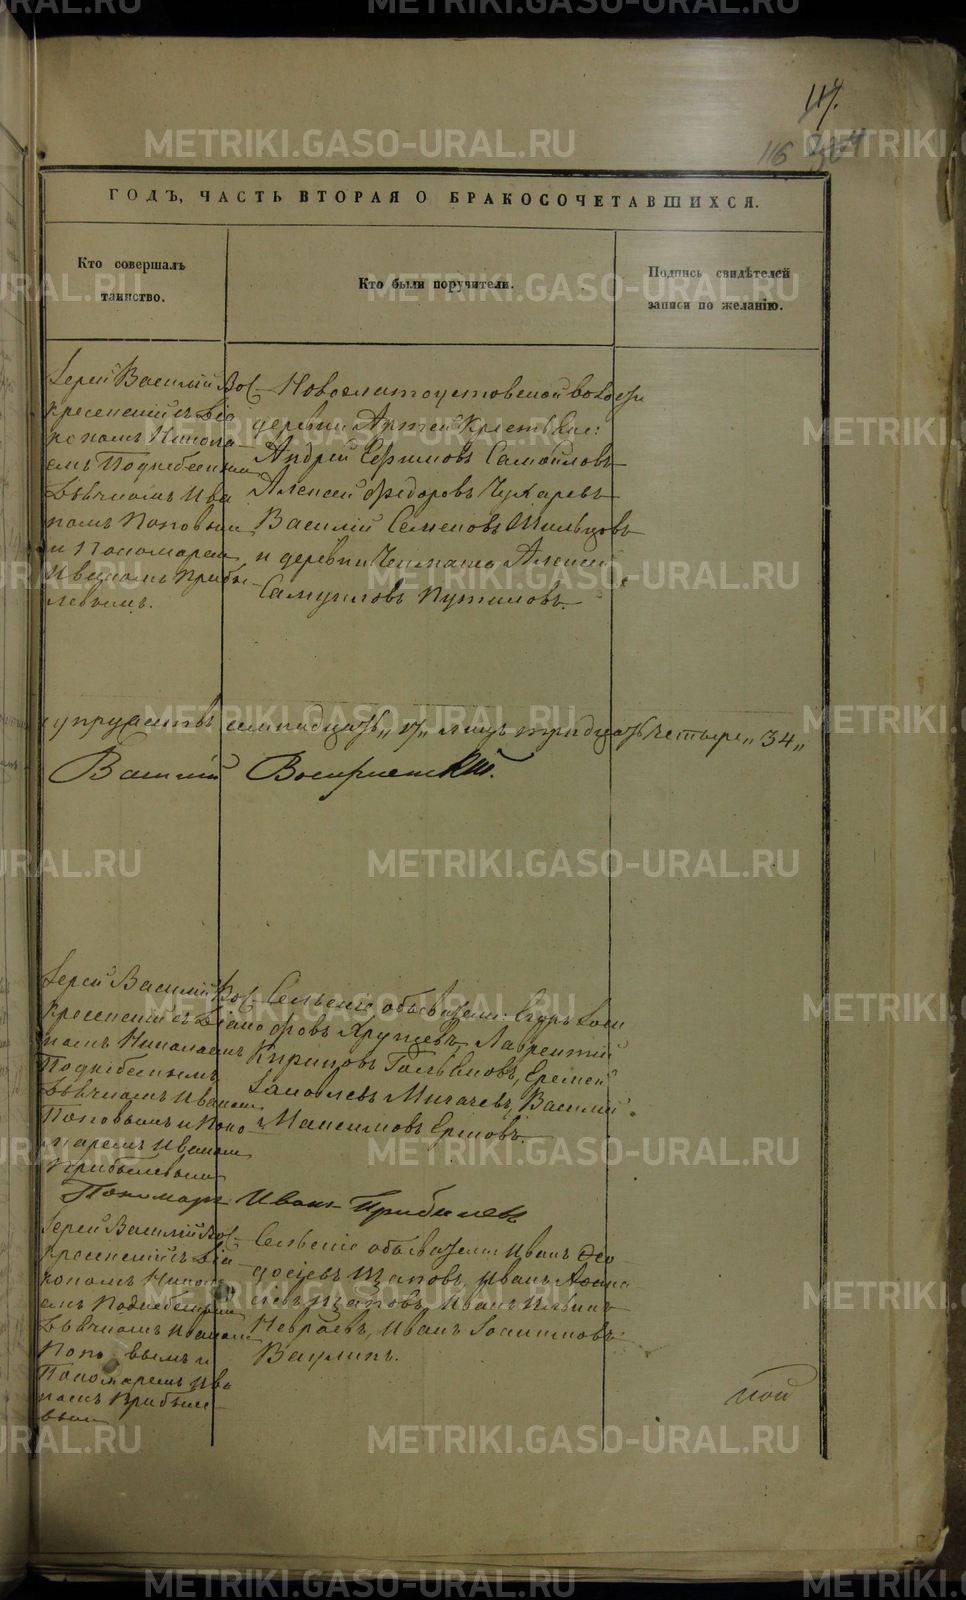 117.
116
ГОДЪ, ЧАСТЬ ВТОРАЯ О БРАКОСОЧЕТАВШИХСЯ.
Кто совершалъ
таинство.
Кто были поручители.
Подпись свидѣтелей
записи по желанію.
Іерей Василій Вос-
кресенскій съ Діа
кономъ Никола-
емъ Поднебеснымъ
Дьячкомъ Ива
номъ Поповымъ
и Пономаремъ
Иваномъ Прибы-
левымъ.
Новозлатоустовской волости
деревни Артей Крестьяне:
Андрей Ефимовъ Самойловъ
Алексей Федоровъ Чухаревъ
Василій Семеновъ Шильцовъ
и деревни Алексей
Самуиловъ Путиловъ.
супружествъ семнадцать „17„ лицъ тридцать четыре „34„
Василій Воскресенскій.
Іерей Василій Вос-
кресенскій съ Діако
номъ Николаемъ
Поднебеснымъ
Дьячкомъ Иваномъ
Поповымъ и Поно
маремъ Иваномъ
Прибылевымъ
Сельскіе обыватели: Егоръ Іоси
фовъ Хрущевъ, Лаврентій
Кириловъ Еремей
Іаковлевъ Мигачевъ, Василій
Максимовъ Ершовъ.
Пономарь Иванъ Прибылевъ
Іерей Василій Вос-
кресенскій съ Діа-
кономъ Никола
емъ Поднебеснымъ
Дьячкомъ Иваномъ
Поповымъ и
Пономаремъ Ива
номъ Прибыле-
вымъ
Сельскіе обыватели Иванъ Ѳео-
досіевъ Щаповъ, Иванъ Аѳана
сьевъ Щаповъ, Иванъ Ильинъ
Невраевъ, Иванъ
Ваулинъ.
METRIKI.GASO-URAL.RU